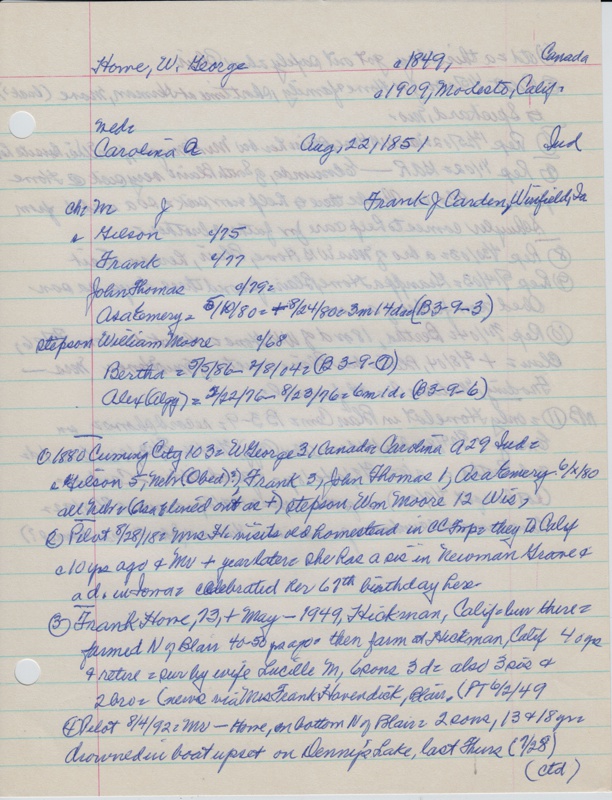 Horne, W. George c1849, Canada
c1909, Modesto, Calif.
Neb=
Carolina A Aug, 22, 1851 Ind
ch= M J Frank J Carden, Winfield, Ia
Gilson c/75
Frank c/77
John Thomas c/79=
Asa Emery = 5/10/80 = 8/24/80 = 3m 14da (B3-9-3)
stepson William Moore c/68
Bertha = 5/5/86 - 2/8/04 = (B3-9-1)
Alex (Algy) = 2/22/76 - 8/23/76 = 6m 1d. (B3-9-6)
① 1880 Cuming City 103 = W George 31 Canada = Carolina A 29 Ind =
Gilson 5, Neb (Obed?), Frank 3, John Thomas 1, Asa Emery 6/x/80
all Neb = (Asa lined out as +) stepson Wm Moore 12 Wis,
② Pilot 8/28/18 = Mrs H visits old homestead in CC Twp = they to Calif
c 10 yrs ago & Mr + year later = she has a sis in Newman Grove &
a d. in Iowa = celebrated her 67th birthday here
③ Frank Horne, 73, + May - 1949, Hickman, Calif = bur there =
farmed N of Blair 40-50 yrs ago = then farm at Hickman, Calif 40 yrs
& retire = sur by wife Lucille M, 6 sons 3 d = also 3 sis &
2 bro = (news via Mrs Frank Havendick, Blair. (PT 6/2/49
④ Pilot 8/4/92 = Mr - Horne, on bottom N of Blair = 2 sons, 13 & 18 yrs
drowned in boat upset on Denny's Lake, last Thurs (7/28)
(ctd)